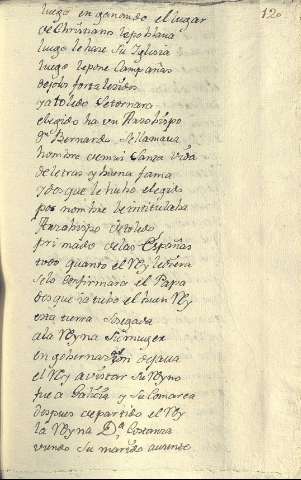 120
luego en ganando el lugar
de Christiano lepoblava
luego le hace Su Iglesia
luego lepone Campañas
dejolos fortalezidos
ya toledo Se tornara
elegido ha un Arzobispo
Dn Bernardo Se llamava
hombre demui Santa vida
de letras y buena fama
y dos que le hubo elegido
por nombre le intitulaba
Arzobispo de toledo
primado de las Españas
todo quanto el Rey lediera
Selo Confirmara el Papa
dos que ia tubo el buen Rey
esta tierra Sosegada
a la Reyna Su muger
en gobernazion dejava
el Rey avisitar Su Reyno
fue a Galicia y Su Comarca
despues de partido el Rey
la Reyna Dª Costanza
viendo Su marido ausente